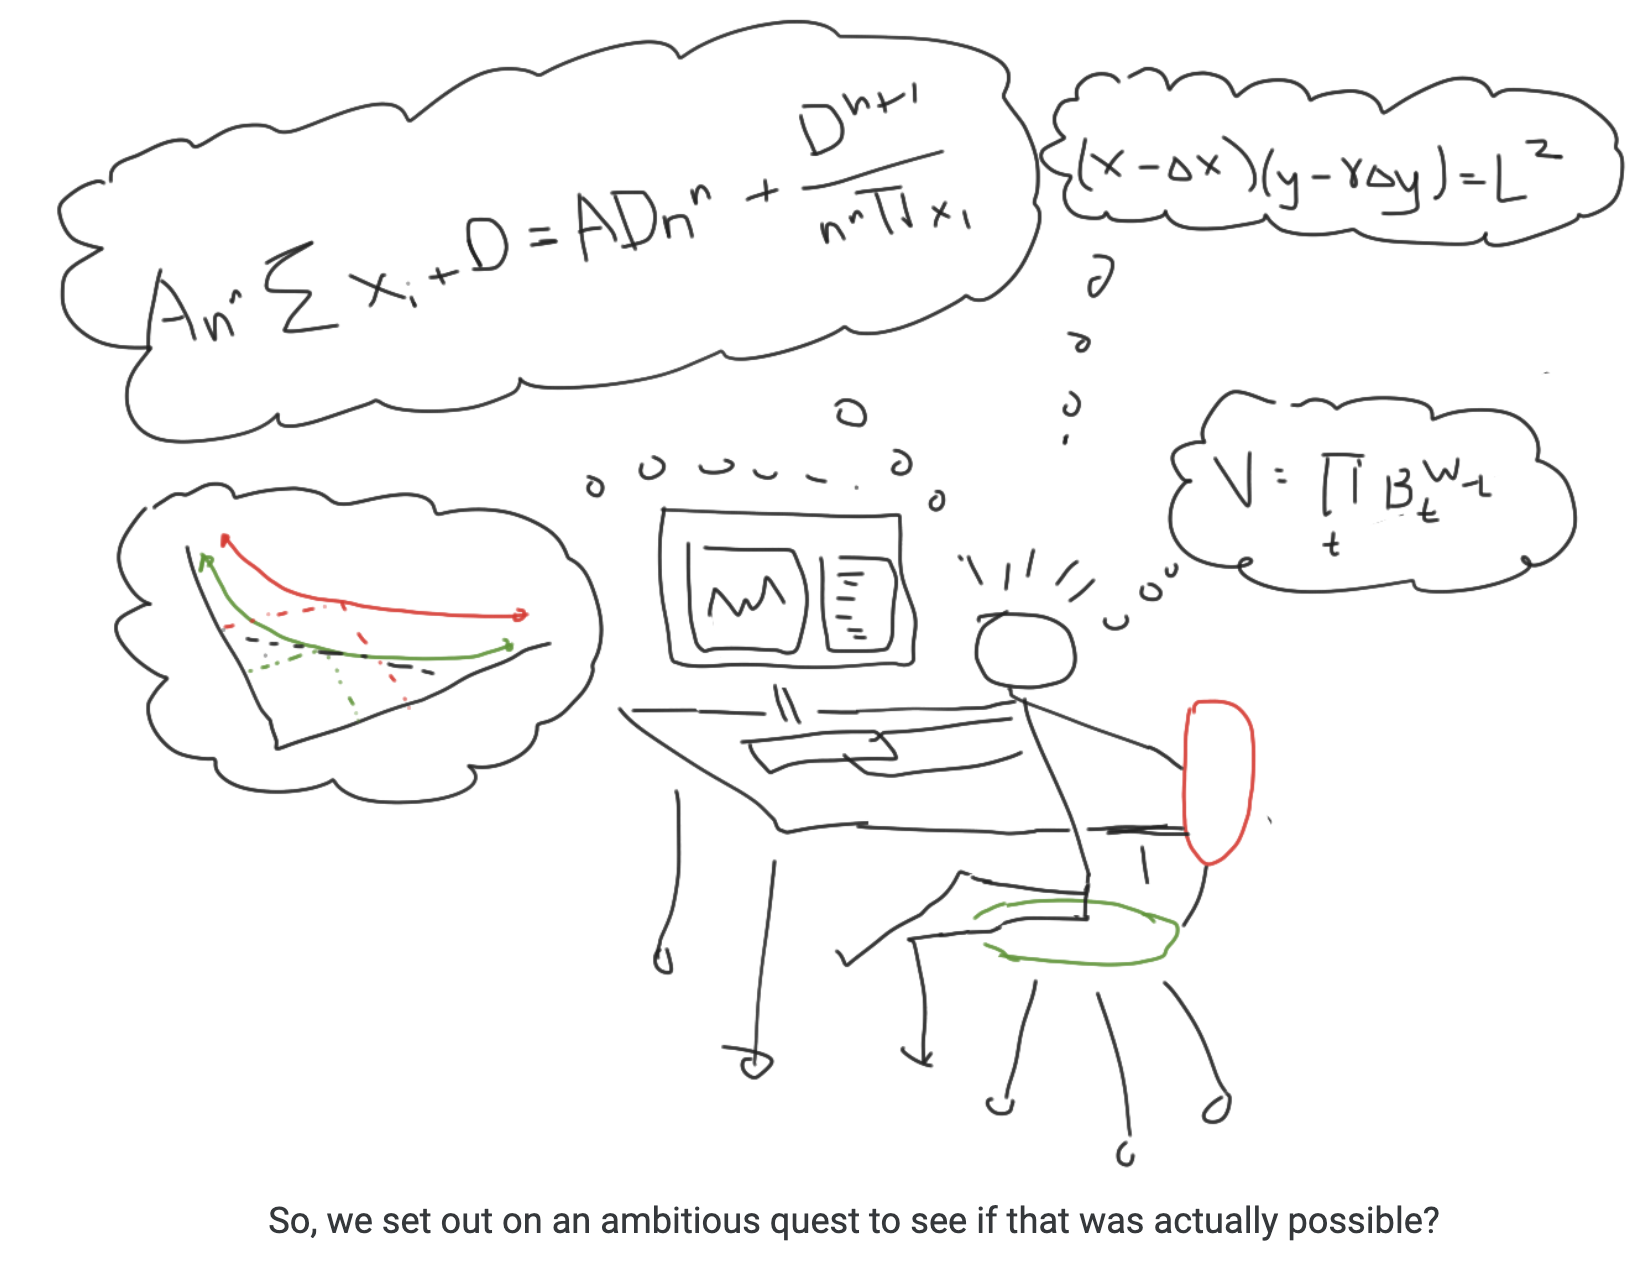 An^n Σ x_i + D = ADn^n + D^{n+1} / n^n ∏ x_i
(x - Δx)(y - γΔy) = L^2
V = ∏_t B_t^{W_t}
So, we set out on an ambitious quest to see if that was actually possible?